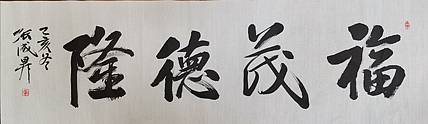 福茂德隆
乙亥冬
张成昇